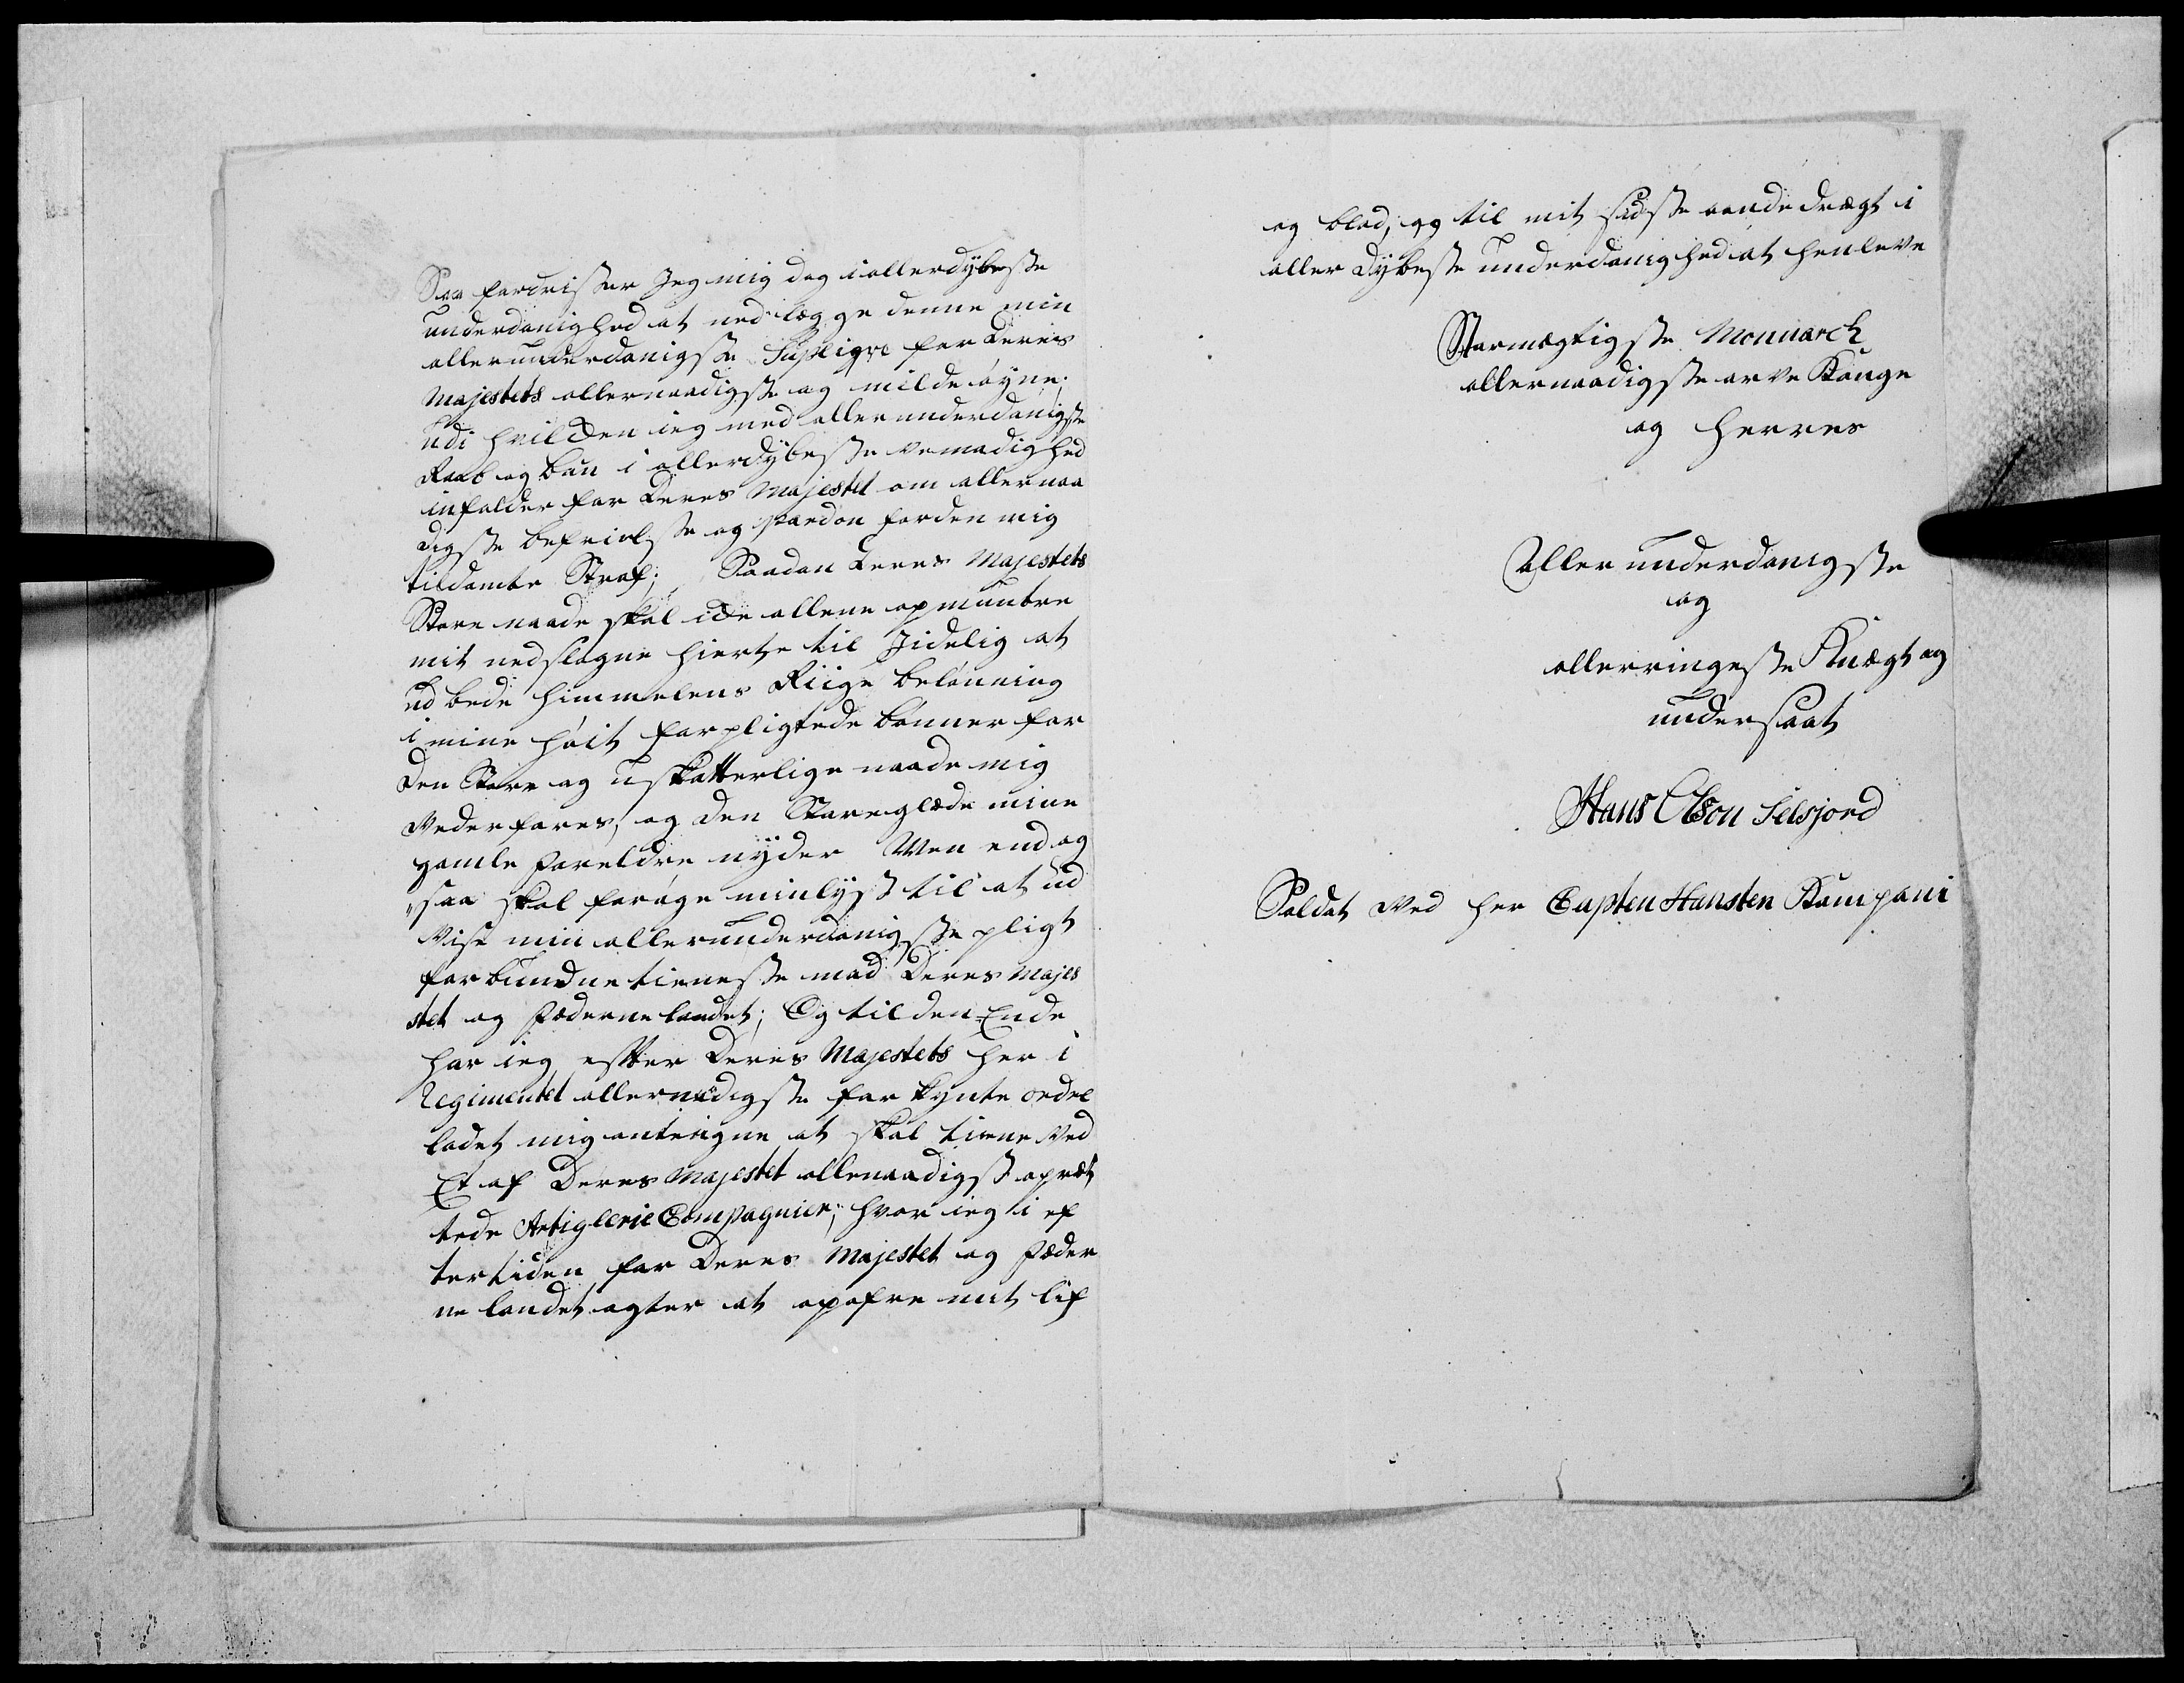 Saa fordrister Jeg mig dog i allerdybeste
underdanighed at nedlægge denne min
allerunderdanigste Supliqve for Deres
Majestets allernaadigste og milde øyne;
udi hvilcken ieg med allerunderdanigste
Raab og bøn i allerdybeste ydmyghed
infalder for Deres Majestet om allernaa
digste befrielse og pardon for den mig
tildømte Straf; Saadan Deres Majestets
Store naade skal icke allene opmuntre
mit nedslagne hierte til Jidelig at
udbede himmelens Riige belønning
i mine høit forpligtede bønner for
den Store og uskatterlige naade mig
vederfares, og den Store glæde mine
gamle foreldre nyder Men endog
saa skal forøge min lyst til at ud
vise min allerunderdanigste pligt
forbundne tieneste mod Deres Majes
stet og fæderne landet; Og til den Ende
har ieg efter Deres Majestets her i
Regimentet allernadigste forkynte ordre
ladet mig anteigne at skal tiene ved
Et af Deres Majestet allenaadigst opret
tede Artiglerie Compagnier; hvor ieg i ef
tertiden for Deres Majestet og fæder
ne landet agter at opofre mit lif
og blod, og til mit sidste aandedragt i
aller dybeste underdanighed at henleve
Stormægtigste Monnarch
allernaadigste arve Konge
og Herres
Aller underdanigste
og
allerringeste Knægt og
undersaat
Hans Olson Selsjord
Soldat ved her Capten Hansten Kompani